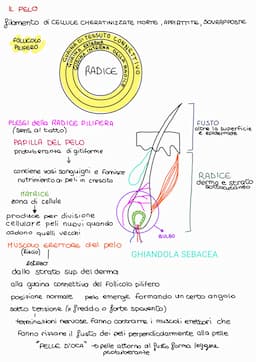 IL PELO
filamento di CELLULE CHERATINIZZATE MORTE, APPIATTITE, SOVRAPPOSTE
FOLLICOLO
PILIFERO
GUAINA DI TESSUTO CONNETTIVO
GUAINA ESTERNA
GUAINA INTERNA DELLA RADICE
RADICE
PLESSI della RADICE PILIFERA
(sensi al tatto)
PAPILLA DEL PELO
protuberanza digitiforme
contiene vasi sanguigni e fornisce
nutrimento a peli in crescita
MATRICE
zona di cellule
produce per divisione
cellulare peli nuovi quando
cadono quelli vecchi
FUSTO
oltre la superficie
e epidermide
RADICE
derma e strato
sottocutaneo
BULBO
GHIANDOLA SEBACEA
MUSCOLO ERETTORE del pelo
(liscio)
esteso
dallo strato sup del derma
alla guaina connettiva del follicolo pilifero
posizione normale pelo emerge formando un certo angolo
sotto tensione (x freddo o forte spavento)
terminazioni nervose fanno contrarre i muscoli erettori che
fanno rizzare il fusto dei peli perpendicolarmente alla pelle
"PELLE D'OCA" → pelle attorno al fusto forma leggere
protuberanze